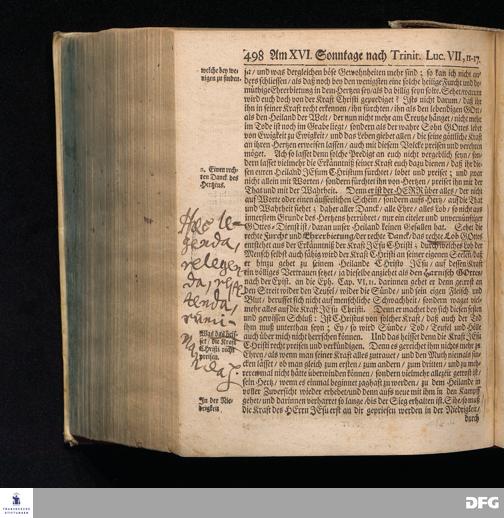 498 Am XVI. Sonntage nach Trinit. Luc. VII, 11-17.
welche bey we-
nigen zu finden.
ja / und was dergleichen böse Gewohnheiten mehr sind ; so kan ich nicht an-
ders schliessen / als daß noch bey den wenigsten eine solche heilige Furcht und de-
müthige Ehrerbietung in dem Hertzen sey / als da billig seyn solte. Sehet / warum
wird euch doch von der Krafft Christi geprediget ? Ists nicht darum / daß ihr
ihn in seiner Krafft recht erkennen / ihn fürchten / ihn als den lebendigen GOtt /
als den Heiland der Welt / der nun nicht mehr am Creutze hänget / nicht mehr
im Tode ist noch im Grabe lieget / sondern als der wahre Sohn GOttes lebet
von Ewigkeit zu Ewigkeit / und das Leben giebet allen / die seine göttliche Krafft
an ihren Hertzen erweisen lassen / auch mit diesem Volcke preisen und verehren
möget. Ach so lasset denn solche Predigt an euch nicht vergeblich seyn / son-
dern lasset vielmehr die Erkäntniß seiner Krafft euch dazu dienen / daß ihr die-
2. Einen rech-
ten Danck des
Hertzens.
sen euren Heiland JEsum Christum fürchtet / lobet und preiset ; und zwar
nicht allein mit Worten / sondern fürchtet ihn von Hertzen / preiset ihn mit der
That und mit der Wahrheit. Denn er ist der HERR über alles / der nicht
auf Worte oder einen äusserlichen Schein / sondern aufs Hertz / auf die That
und Wahrheit siehet ; daher aller Danck / alle Ehre / alles Lob / so nicht aus
innerstem Grunde des Hertzens herrühret / nur ein eiteler und unvernünftiger
GOttes-Dienst ist / daran unser Heiland keinen Gefallen hat. Sehet die
rechte Furcht und Ehrerbietung / der rechte Danck / das rechte Lob GOttes
entstehet aus der Erkäntniß der Krafft JEsu Christi ; durch welches Lob der
Mensch selbst auch fähig wird der Krafft Christi an seiner eigenen Seelen / daß
er hinzu gehet zu seinem Heilande Christo JEsu / auf dessen Krafft
ein völliges Vertrauen setzet / ja dieselbe anziehet als den Harnisch GOttes /
nach der Epist. an die Eph. Cap. VI, 11. darinnen gehet er denn getrost an
den Streit wider den Teufel / wider die Sünde / und sein eigen Fleisch und
Blut / beruffet sich nicht auf menschliche Schwachheit / sondern waget viel-
mehr alles auf die Krafft JEsu Christi. Denn er machet bey sich diesen festen
und gewissen Schluß : Ist Christus von solcher Krafft / daß auch der Tod
ihm muß unterthan seyn ; Ey / so wird Sünde / Tod / Teufel und Hölle
Was das heis-
se, die Krafft
Christi recht
preisen.
auch über mich nicht herrschen können. Und das heisset denn die Krafft JEsu
Christi recht preisen und verkündigen. Denn es gereichet ihm nichts mehr zu
Ehren / als wenn man seiner Krafft alles zutrauet / und den Muth niemals sin-
cken lässet / ob man gleich zum ersten / zum andern / zum dritten / und zu meh-
rernmal nicht hätte überwinden können / sondern vielmehr allezeit getrost ist /
sein Hertz / wenn es einmal beginnet zaghaft zu werden / zu dem Heilande in
voller Zuversicht wieder erhebet / und denn aufs neue mit ihm in den Kampff
In der Nie-
drigkeit
gehet / und darinnen verharret so lange / bis der Sieg erhalten ist. Sihe / so muß
die Krafft des HErrn JEsu erst an dir gepriesen werden in der Niedrigkeit /
durch
DFG